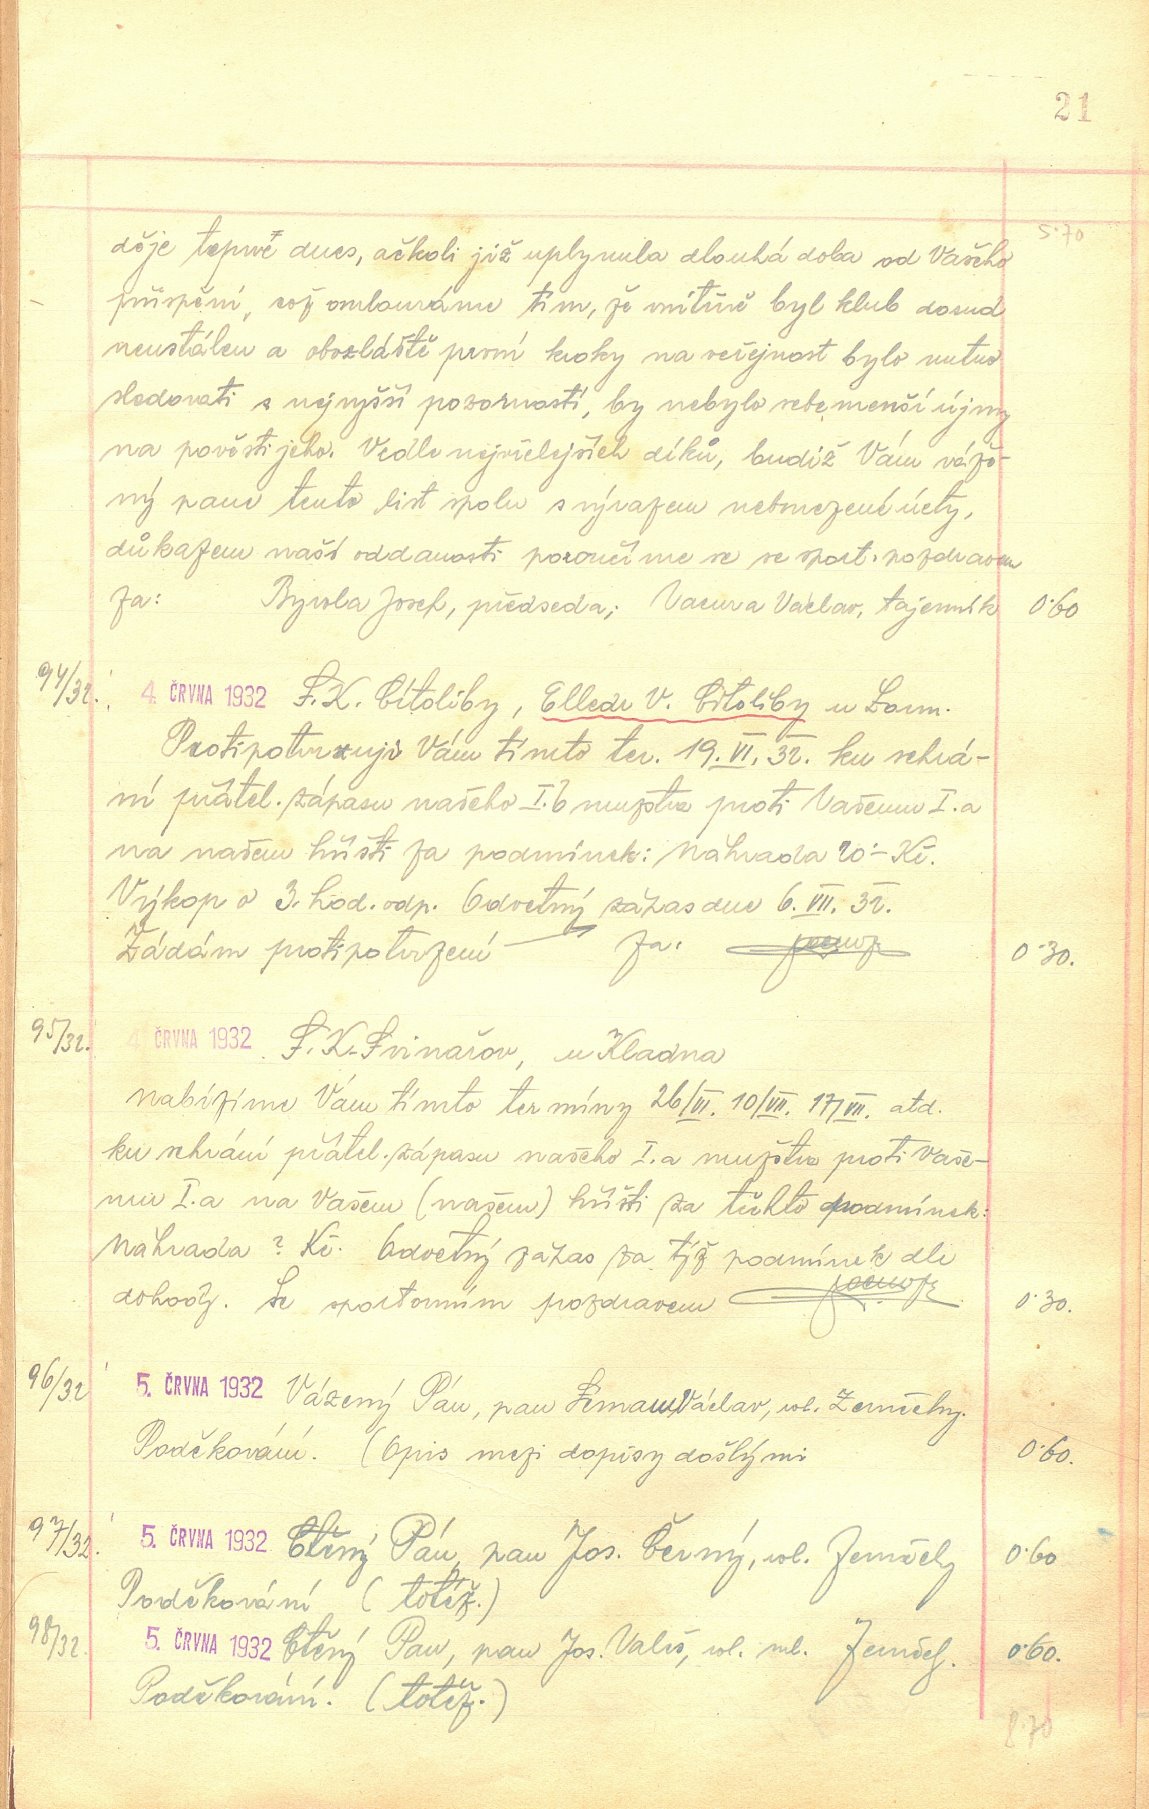 21
5·70
děje teprvé dnes, ačkoli již uplynula dlouhá doba od Vašeho
přispění, což omlouváme tím, že vnitřně byl klub dosud
neustálen a obvzláště první kroky na veřejnost bylo nutno
sledovati s nejvyšší pozorností, by nebylo sebemenší újmy
na pověsti jeho. Vedle nejvřelejších díků, budiž Vám váže-
ný pane tento list spolu s výrazem neomezené úcty,
důkazem naší oddanosti poroučíme se se sport. pozdravem
Za: Josef, předseda; Vacura Václav, tajemník 0·60
94/32. 4. ČRVNA 1932 S.K. Cítoliby, Elledr V. Cítoliby u Loun.
Protipotvrzuji Vám tímto ter. 19. VI. 32. ku sehrá-
ní přátel. zápasu našeho I.b mužstva proti Vašemu I.a
na našem hřišti za podmínek: Náhrada 20·- Kč.
Výkop o 3. hod. odp. Odvetný zápas dne 6. VII. 32.
Žádám protipotvrzení Za: 0·30.
95/32. 4. ČRVNA 1932 S.K. Svinařov, u Kladna
Nabízíme Vám tímto termíny 26/VI. 10/VII. 17/VII. atd.
ku sehrání přátel. zápasu našeho I.a mužstva proti Vaše-
mu I.a na Vašem (našem) hřišti za těchto podmínek:
Náhrada ? Kč. Odvetný zápas za týž podmínek dle
dohody. Se sportovním pozdravem 0·30.
96/32 5. ČRVNA 1932 Vázený Pán, pan Václav, vel. Zeměchy.
Poděkování. (Opis mezi dopisy došlými 0·60.
97/32. 5. ČRVNA 1932 Ctěný Pán, pan Jos. Černý, vel. Zeměchy 0·60
Poděkování (totéž.)
98/32. 5. ČRVNA 1932 Ctěný Pan, pan Jos. Valeš, vel. ml. Zeměch. 0·60.
Poděkování. (totéž.)
8·70